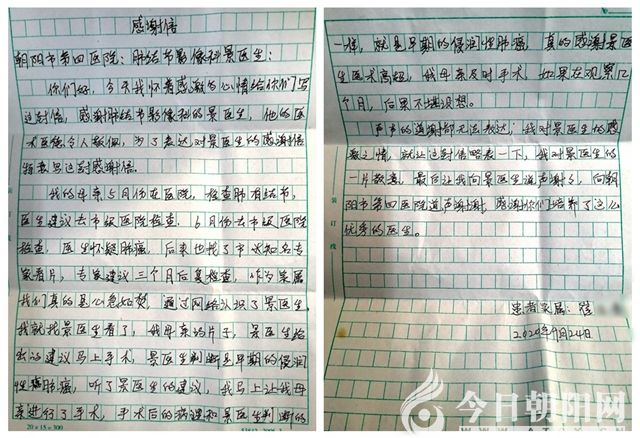 感谢信
朝阳市第四医院:肺结节影像科景医生:
你们好,今天我怀着感激的心情给你们写
这封信,感谢肺结节影像科的景医生,他的医
术医德令人敬佩,为了表达对景医生的感谢信
特意写这封感谢信。
我的母亲5月份在医院,检查肺有结节,
医生建议去市级医院检查,6月份去市级医院
检查,医生怀疑肺癌,后来也找了市级知名专
家看片,专家建议三个月后复检查,作为家属
我们真的是心急如焚,通过网络认识了景医生,
我就找景医生看了,我母亲的片子,景医生给
出的建议马上手术,景医生判断是早期的侵润
性肺癌,听了景医生的建议,我马上让我母
亲进行了手术,手术后的病理和景医生判断的
20×15=300
一样,就是早期的侵润性肺癌,真的感谢景医
生医术高超,我母亲及时手术,如果在观察几
个月,后果不堪设想。
声声的道谢都无法表达,我对景医生的感
激之情,就让这封信略表一下,我对景医生的
一片敬意,最后让我向景医生道声谢谢,向朝
阳市第四医院道声谢谢,感谢你们培养了这么
优秀的医生。
患者家属:崔
2024年9月24日
装订线
今日朝阳网